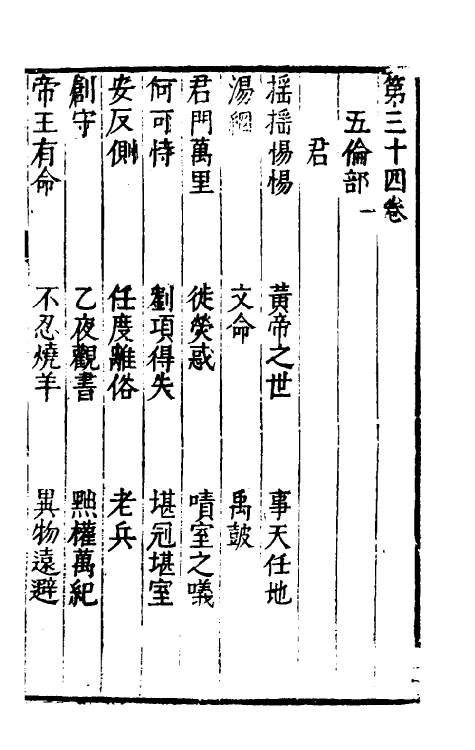 第三十四卷
五倫部一
君
搖搖惕惕　黃帝之世　事天任地
湯網　文命　禹鼓
君門萬里　徙熒惑　嘖室之議
何可恃　劉項得失　堪冠堪室
安反側　任度離俗　老兵
創守　乙夜觀書　黜權萬紀
帝王有命　不忍燒羊　異物遠避